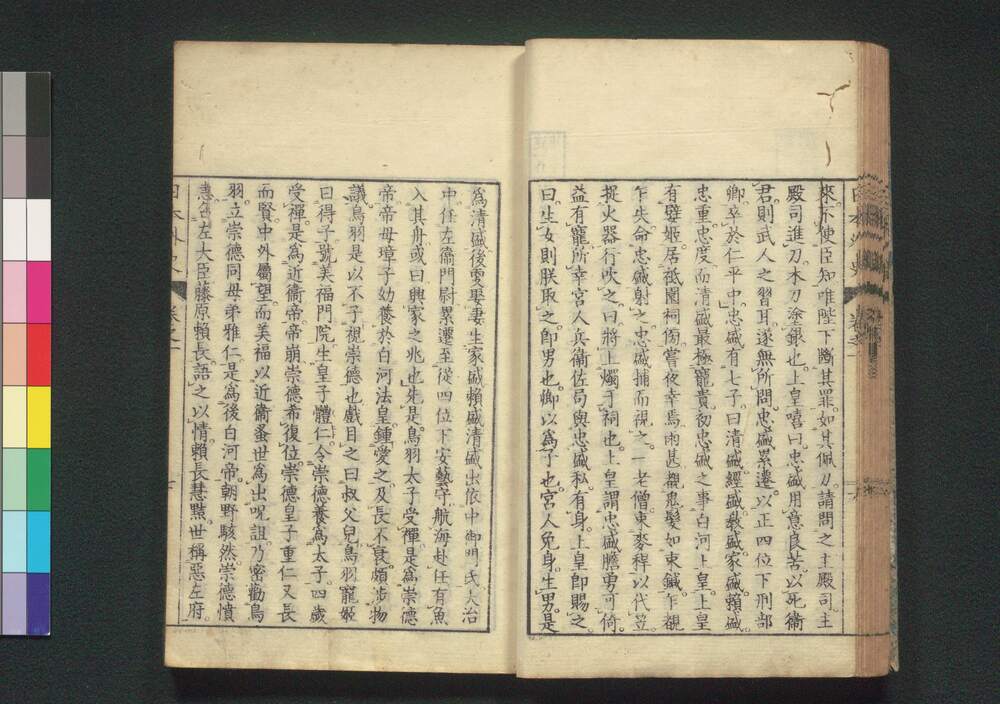 來。不使臣知。唯陛下斷其罪。如其佩刀。請問之主殿司。主
殿司進刀。木刀塗銀也。上皇嘻曰。忠盛用意良苦。以死衞
君。則武人之習耳。遂無所問。忠盛累遷。以正四位下刑部
卿。卒於仁平中。忠盛有七子。曰清盛。經盛。教盛。家盛。賴盛。
忠重。忠度。而清盛最極寵貴。初忠盛之事白河上皇。上皇
有嬖姬。居祇園祠傍。嘗夜幸焉。雨甚。覩鬼髮如束鍼。乍覩
乍失。命忠盛射之。忠盛捕而視之。一老僧束麥稈以代笠。
捉火器行吹之。曰將上燭于祠也。上皇謂忠盛膽勇可倚。
益有寵。所幸宮人兵衞佐局。與忠盛私有身。上皇卽賜之。
曰。生女則朕取之。卽男也。卿以爲子也。宮人免身。生男。是
爲清盛。後更娶妻。生家盛賴盛。清盛出依中御門氏。大治
中。任左衞門尉。累遷至從四位下安藝守。航海赴任。有魚
入其舟。或曰。興家之兆也。先是。鳥羽太子受禪。是爲崇德
帝。帝母璋子幼養於白河法皇。鍾愛之。及長不衰。頗涉物
議。鳥羽是以不子視崇德也。戲目之曰叔父兒。鳥羽寵姬
曰得子。號美福門院。生皇子體仁。令崇德養爲太子。四歲
受禪。是爲近衞帝。帝崩。崇德希復位。崇德皇子重仁又長
而賢。中外屬望。而美福以近衞蚤世爲出呪詛。乃密勸鳥
羽立崇德同母弟雅仁。是爲後白河帝。朝野駭然。崇德憤
恚。告左大臣藤原賴長。語之以情。賴長慧黠。世稱惡左府。